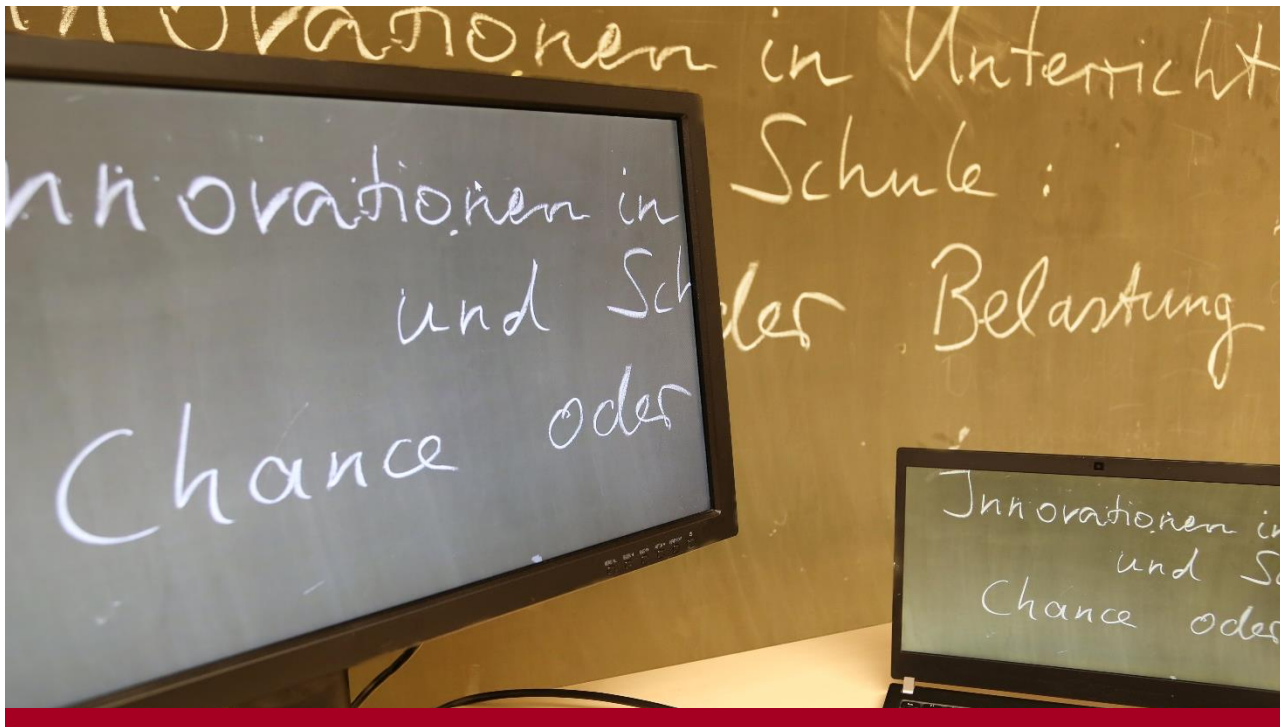 nnovationen in Unterricht
Schule :
der Belastung
nnovationen in
und Sch
Chance oder
Innovationen in
und Sc
Chance oder